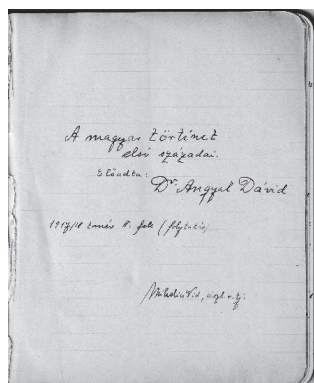 A magyar történet
első századai.
Előadta:
Dr. Angyal Dávid
1917/18 tanév II. fele (folytatás)